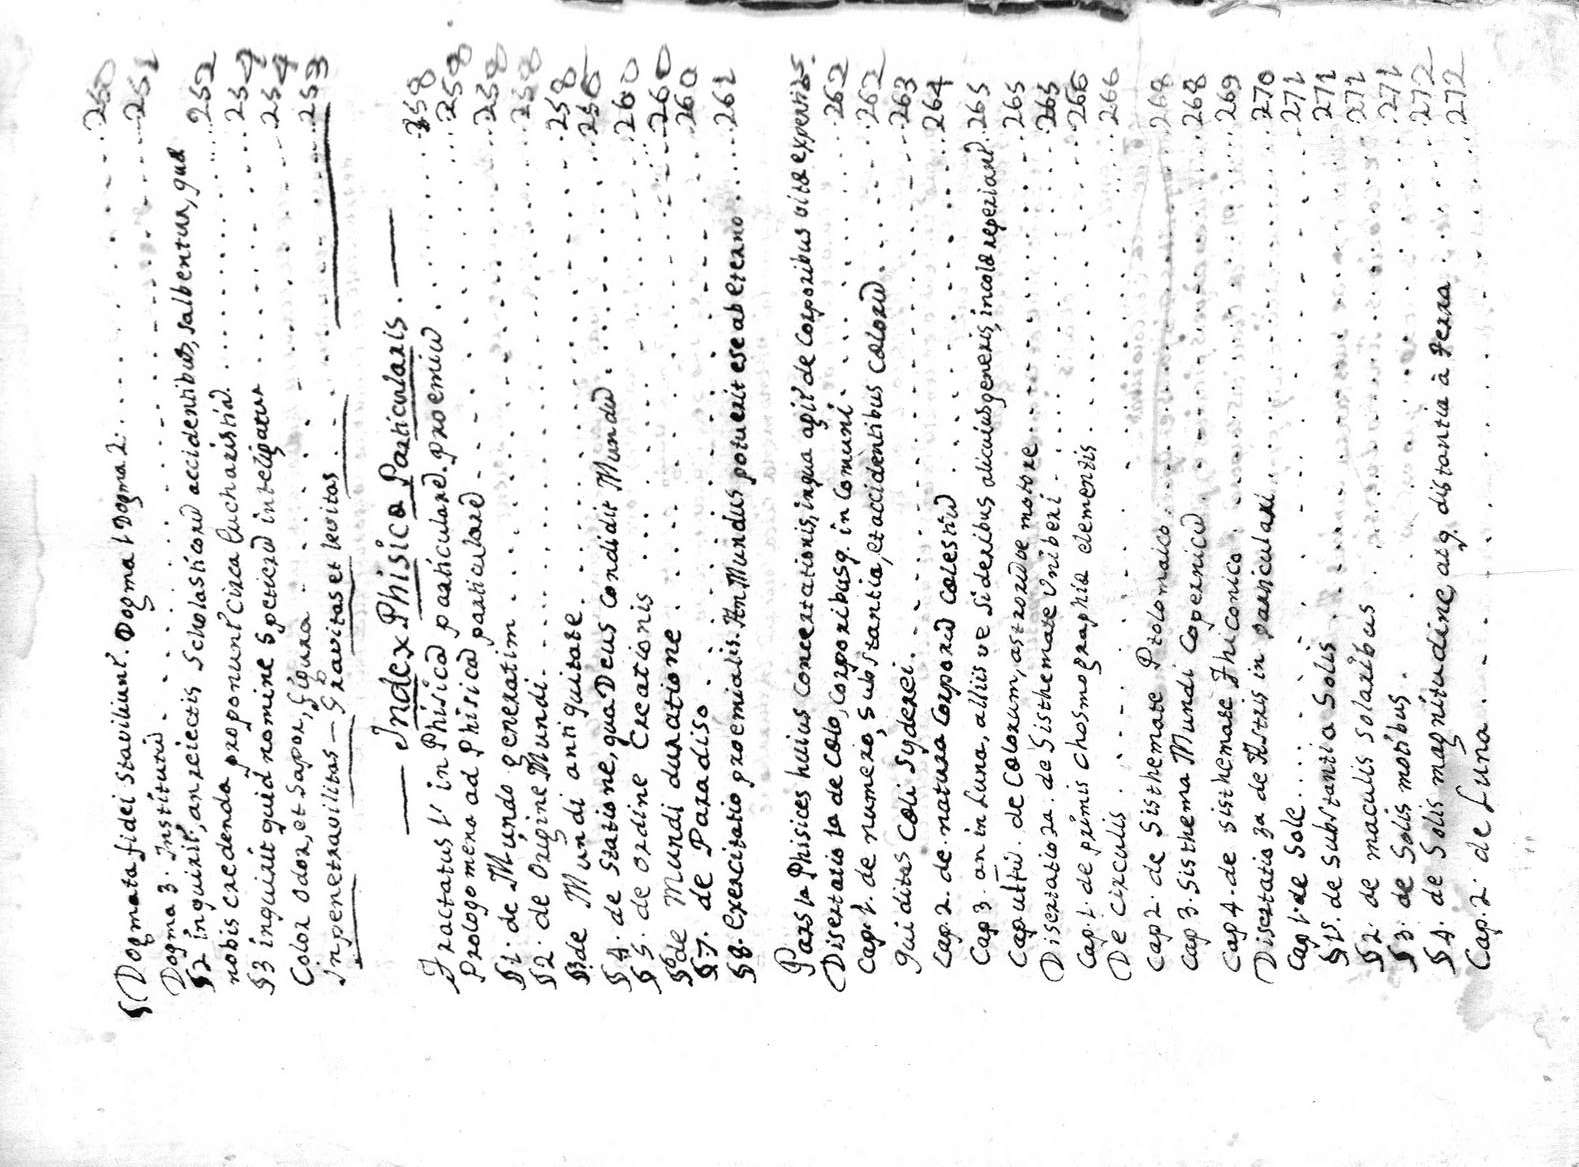 §1 Dogmata fidei Staviliunt. Dogma 1 Dogma 2. 250
Dogma 3. Institutū. 251
§2 inquirit, an reiectis Scholasticorū accidentibus, salbentur, quæ 252
nobis credenda proponunt Circa Eucharistiā. 254
§3 inquirit quid nomine Specierū inteligatur 254
Color Odor, et Sapor, figura 253
Inpenetravilitas — Gravitas et levitas
— Index Phisicæ Particularis. —
Tractatus 1us in Phisicā particularē. proemiū 258
Prologomena ad Phisicā particularē 258
§1. de Mundo generatim 258
§2. de Origine Mundi. 258
§3. de Mundi antiquitate 258
§4. de Statione, qua Deus Condidit Mundū. 256
§5. de ordine Creationis 260
§6 de Mundi duratione 260
§7. de Paradiso 260
§8. Exercitatio proemialis. An Mundus potuerit ese ab eterno 261
Pars 1a Phisices huius Concertationis, in qua agit de Corporibus vitæ expertibs.
Disertatio 1a de Cœlo, Corporibusq. in Comuni. 262
Cap. 1. de numero, substantia, et accidentibus Cœlorū. 262
Quiditas Cœli Syderei. 263
Cap. 2. de natura Corporū Cœlestiū 264
Cap 3. an in Luna, alliis ve Sideribus alicuius generis, incolæ reperiant. 265
Cap. ultū. de Cœlorum, astrorūve motore 265
Disertatio 2a. de Sisthemate Uniberi 265
Cap. 1. de primis Chosmographiæ elementis 266
De Circulis 266
Cap 2. de Sisthemate Ptolomaico 268
Cap 3. Sisthema Mundi Copernicū 268
Cap 4. de Sisthemate Thiconico 269
Disertatio 3a de Astris in particulari 270
Cap 1. de Sole 271
§1. de Substantia Solis 271
§2. de maculis solaribus 271
§3. de Solis motibus. 271
§4. de Solis magnitudine, atq. distantia à terra 272
Cap. 2. de Luna 272